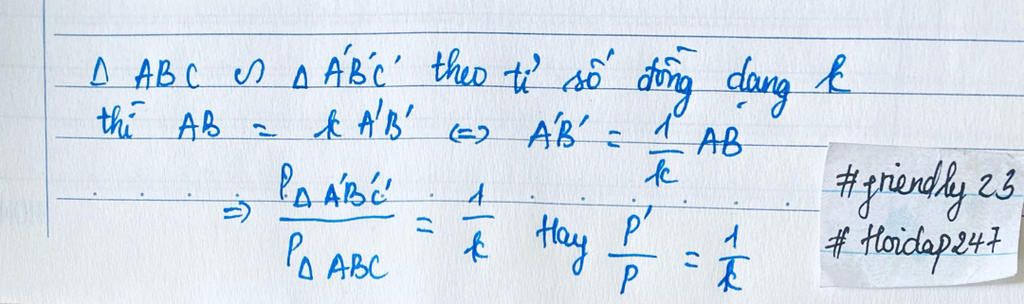 Δ ABC ∽ Δ A'B'C' theo tỉ số đồng dạng k
thì AB = k A'B' ⇔ A'B' = 1/k AB
⇒ P Δ A'B'C' / P Δ ABC = 1/k Hay P'/P = 1/k
#friendly 23
# Hoidap247